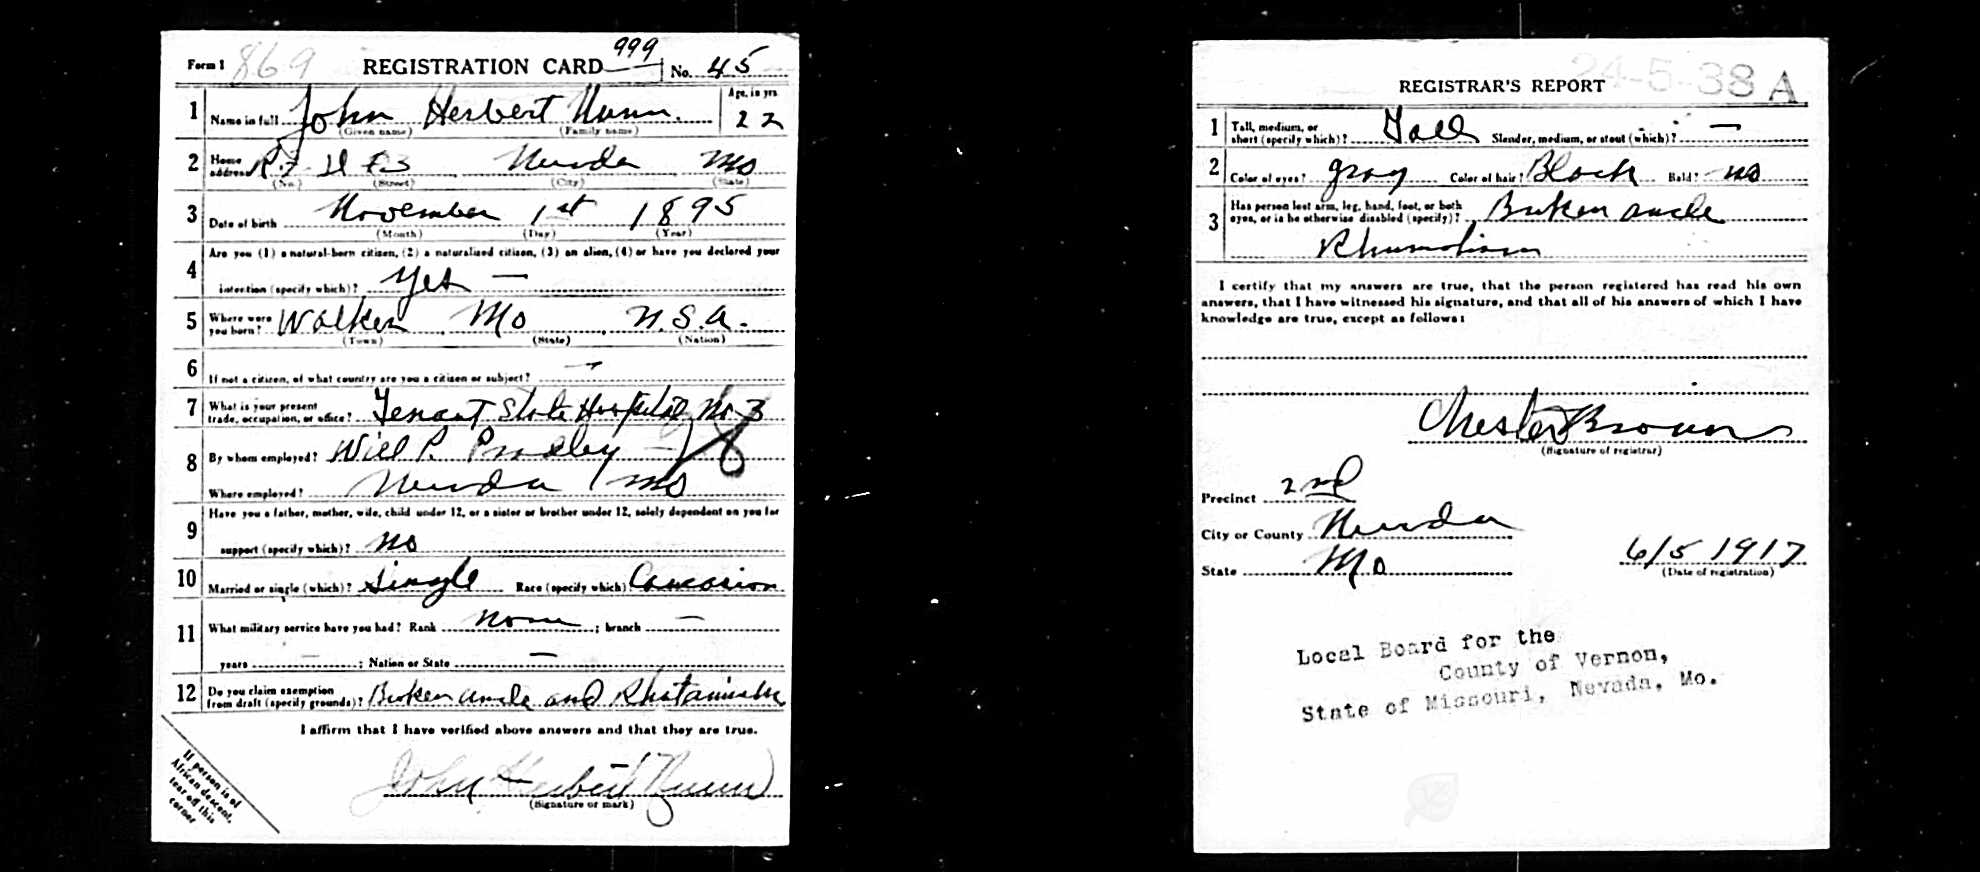 Form 1 869 REGISTRATION CARD 999 No. 45
1 Name in full John Herbert Nunn. Age, in yrs. 22
(Given name) (Family name)
2 Home address R. F. D # 3 Nevada Mo
(No.) (Street) (City) (State)
3 Date of birth November 1st 1895
(Month) (Day) (Year)
4 Are you (1) a natural-born citizen, (2) a naturalized citizen, (3) an alien, (4) or have you declared your
intention (specify which)? Yes —
5 Where were you born? Walker Mo U.S.A.
(Town) (State) (Nation)
6 If not a citizen, of what country are you a citizen or subject? —
7 What is your present trade, occupation, or office? State Hospital No 3
8 By whom employed? Will P.
Where employed? Nevada Mo
9 Have you a father, mother, wife, child under 12, or a sister or brother under 12, solely dependent on you for
support (specify which)? No
10 Married or single (which)? Single Race (specify which)? Caucasion
11 What military service have you had? Rank None ; branch —
years — ; Nation or State —
12 Do you claim exemption from draft (specify grounds)? Broken ancle and
I affirm that I have verified above answers and that they are true.
John Herbert Nunn
(Signature or mark)
If person is of
African descent,
tear off this
corner
24-5-38 A
REGISTRAR'S REPORT
1 Tall, medium, or short (specify which)? Tall Slender, medium, or stout (which)? —
2 Color of eyes? gray Color of hair? Black Bald? no
3 Has person lost arm, leg, hand, foot, or both
eyes, or is he otherwise disabled (specify)? Broken ancle
I certify that my answers are true, that the person registered has read his own
answers, that I have witnessed his signature, and that all of his answers of which I have
knowledge are true, except as follows:
Chester Brown
(Signature of registrar)
Precinct 2nd
City or County Nevada
State Mo
6/5 1917
(Date of registration)
Local Board for the
County of Vernon,
State of Missouri, Nevada, Mo.